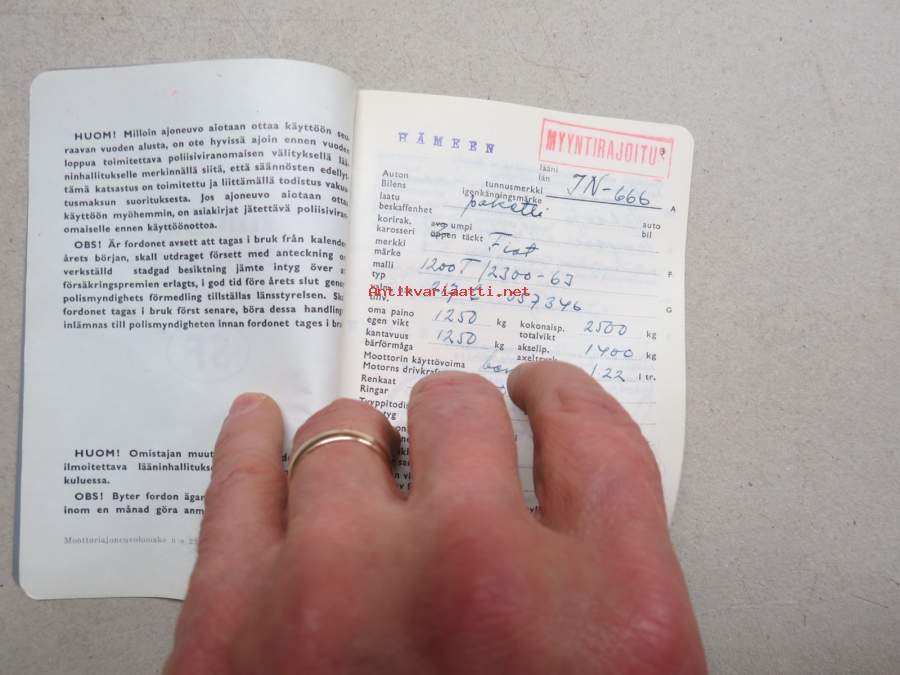 HUOM! Milloin ajoneuvo aiotaan ottaa käyttöön seu-
raavan vuoden alusta, on ote hyvissä ajoin ennen vuoden
loppua toimitettava poliisiviranomaisen välityksellä lää-
ninhallitukselle merkinnällä siitä, että säännösten edellyt-
tämä katsastus on toimitettu ja liittämällä todistus vakuu
tusmaksun suorituksesta. Jos ajoneuvo aiotaan ottaa
käyttöön myöhemmin, on asiakirjat jätettävä poliisiviran-
omaiselle ennen käyttöönottoa.
OBS! Är fordonet avsett att tagas i bruk från kalender
årets början, skall utdraget försett med anteckning o
verkställd stadgad besiktning jämte intyg över a
försäkringspremien erlagts, i god tid före årets slut geno
polismyndighets förmedling tillställas länsstyrelsen. Sk
fordonet tagas i bruk först senare, böra dessa handling
inlämnas till polismyndigheten innan fordonet tages i bru
HUOM! Omistajan muut
ilmoitettava lääninhallitukse
kuluessa.
OBS! Byter fordon ägar
inom en månad göra anm
Moottoriajoneuvolomake n:o
HÄMEEN
MYYNTIRAJOITU
lääni
län
Auton tunnusmerkki IN-666
Bilens igenkänningsmärke A
laatu paketti auto
beskaffenhet bil
korirak. avo umpi
karosseri öppen täckt
merkki Fiat
märke F
malli 1200T/2300-63
typ
Antikvariaatti.net
057346
G
oma paino 1250 kg kokonaisp. 2500 kg
egen vikt totalvikt
kantavuus 1250 kg akselip. 1400 kg
bärförmåga
Moottorin käyttövoima
Motorns drivkraf 1.22 l tr.
Renkaat
Ringar
Tyyppitodis